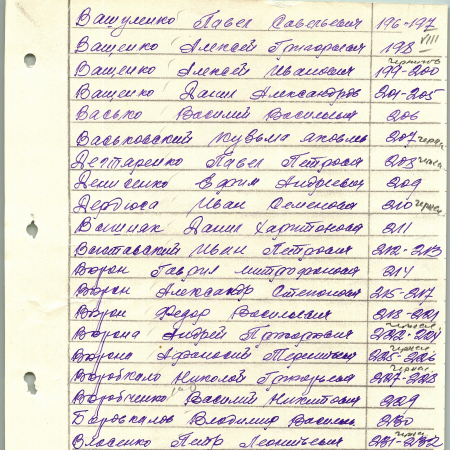 Вакуленко Павел Савельевич 196-197
Ващенко Алексей Григорьевич 198 VIII
Ващенко Алексей Иванович 199-200
Ващенко Данил Александров 201-205
Васько Василий Васильевич 206
Васьковский Кузьма Яковль 207
Дегтаренко Павел Петрович 208
Денисенко Ефим Андреевич 209
Дердюса Иван Семенович 210
Вишняк Данил Харитонович 211
Виставский Иван Петрович 212-213
Ворон Гаврил Митрофанович 214
Ворон Александр Степанович 215-217
Ворон Федор Васильевич 218-221
Ворона Андрей Григорьевич 222-224
Ворона Афанасий 225-226
Воробкало Николай Григорьевич 227-228
Воробченко Василий Никитович 229
Боровкалов Владимир Василь 230
Власенко Петр Леонтьевич 231-232